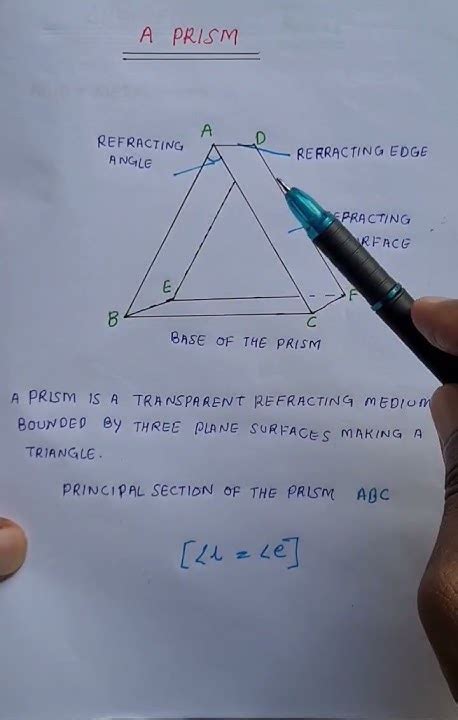 A PRISM
A D
REFRACTING
ANGLE
RERRACTING EDGE
EFRACTING
RFACE
E F
B C
BASE OF THE PRISM
A PRISM IS A TRANSPARENT REFRACTING MEDIUM
BOUNDED BY THREE PLANE SURFACES MAKING A
TRIANGLE.
PRINCIPAL SECTION OF THE PRISM ABC
[∠i = ∠e]